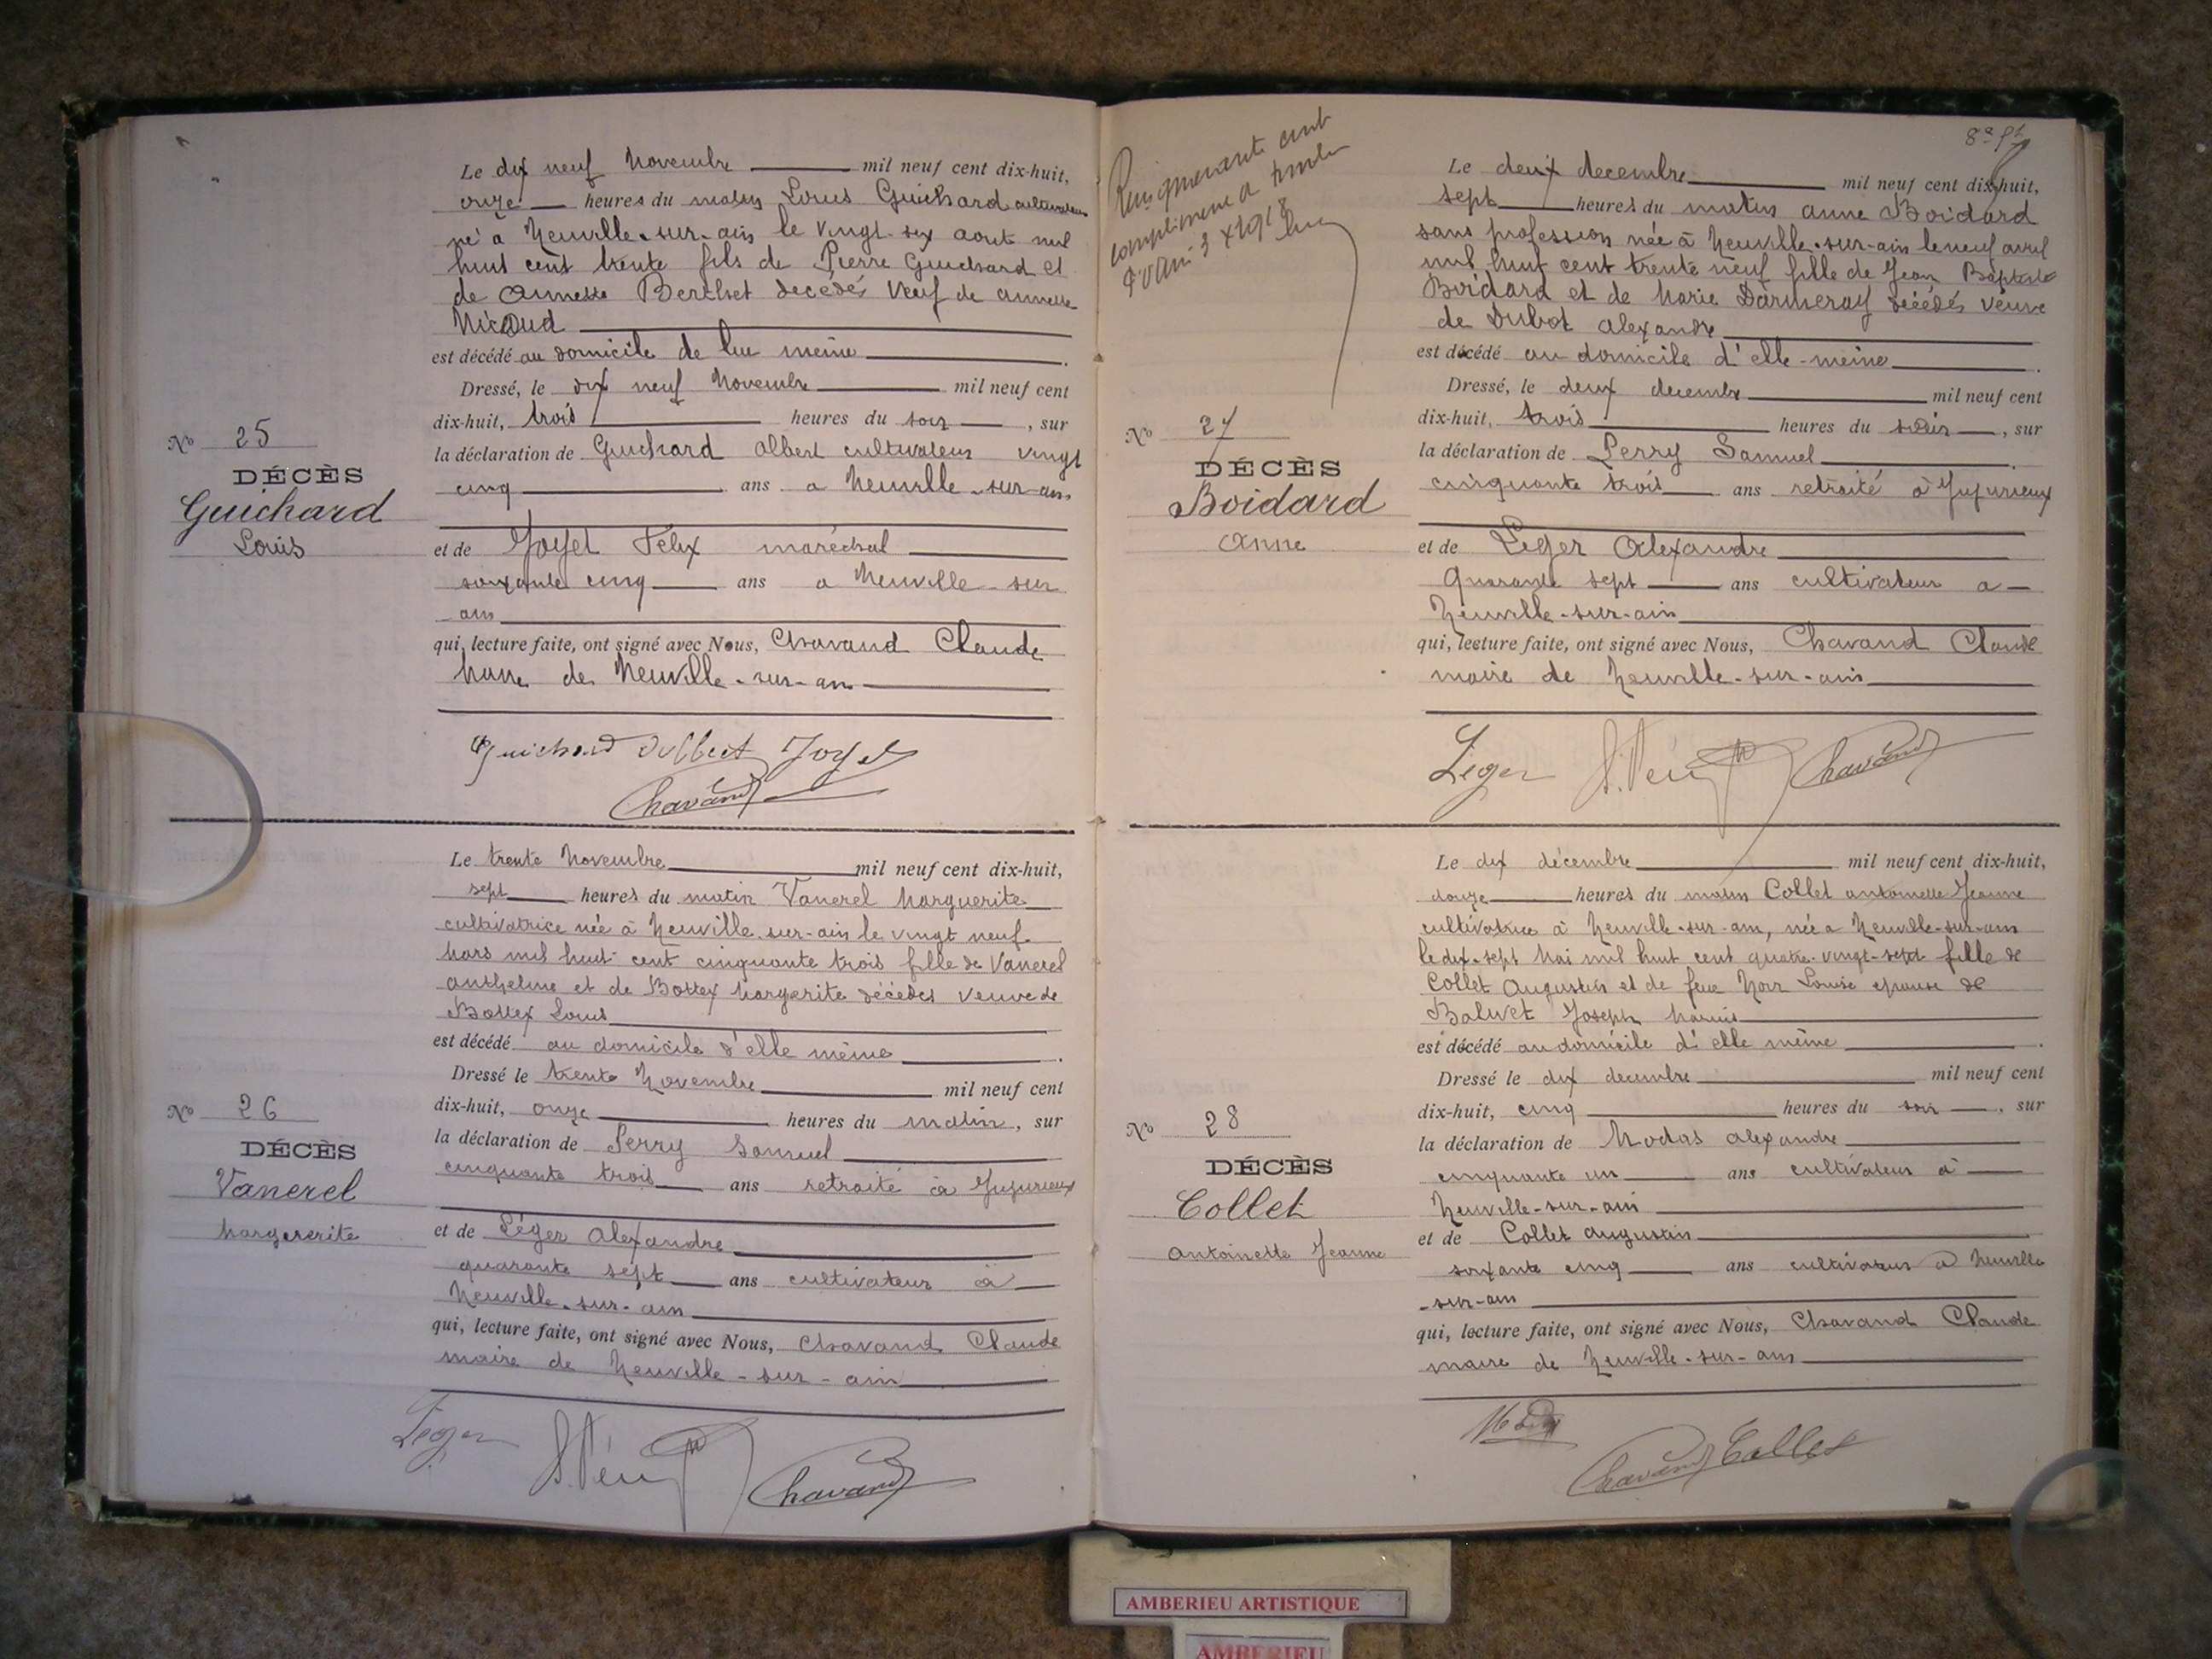 Le dix neuf Novembre mil neuf cent dix-huit,
onze heures du matin Louis Guichard cultivateur
né a Neuville-sur-ain le vingt-six aout mil
huit cent trente fils de Pierre Guichard et
de Annette Berthet décédés Veuf de annette
Nicoud
est décédé au domicile de lui meine
Dressé, le dix neuf Novembre mil neuf cent
dix-huit, trois heures du soir, sur
la déclaration de Guichard albert cultivateur vingt
cinq ans a Neuville-sur-ain
et de Joyet Felix maréchal
soixante cinq ans a Neuville-sur
ain
qui, lecture faite, ont signé avec Nous, Chavand Claude
Maire de Neuville-sur-ain
No 25
DÉCÈS
Guichard
Louis
Guichard Albert Joyet
Chavand
Le trente Novembre mil neuf cent dix-huit,
sept heures du matin Vanerel Marguerite
cultivatrice née à Neuville-sur-ain le vingt neuf
Mars mil huit cent cinquante trois fille de Vanerel
anthelme et de Bottex Margerite décédés veuve de
Bottex Louis
est décédé au domicile d'elle même
Dressé le trente Novembre mil neuf cent
dix-huit, onze heures du matin, sur
la déclaration de Perry Samuel
cinquante trois ans retraité à Jujurieux
et de Léger Alexandre
quarante sept ans cultivateur à
Neuville-sur-ain
qui, lecture faite, ont signé avec Nous, Chavand Claude
maire de Neuville-sur-ain
No 26
DÉCÈS
Vanerel
Marguerite
Leger Chavand
Renseignements
8e
Le deux decembre mil neuf cent dix-huit,
sept heures du matin anne Boidard
sans profession née à Neuville-sur-ain le neuf avril
mil huit cent trente neuf fille de Jean Baptiste
Boidard et de Marie Darmeray décédés veuve
de Dubot alexandre
est décédé au domicile d'elle-meine
Dressé, le deux decembre mil neuf cent
dix-huit, trois heures du soir, sur
la déclaration de Perry Samuel
cinquante trois ans retraité à Jujurieux
et de Léger Alexandre
Quarante sept ans cultivateur a
Neuville-sur-ain
qui, lecture faite, ont signé avec Nous, Chavand Claude
maire de Neuville-sur-ain
No 27
DÉCÈS
Boidard
Anne
Léger Chavand
Le dix décembre mil neuf cent dix-huit,
douze heures du matin Collet antoinette Jeanne
cultivatrice à Neuville-sur-ain, née a Neuville-sur-ain
le dix-sept Mai mil huit cent quatre-vingt-sept fille de
Collet Augustin et de feue Noir Louise epouse de
Balivet Joseph Marius
est décédé au domicile d'elle même
Dressé le dix decembre mil neuf cent
dix-huit, cinq heures du soir, sur
la déclaration de Modas alexandre
cinquante un ans cultivateur à
Neuville-sur-ain
et de Collet augustin
soixante cinq ans cultivateur a Neuville
-sur-ain
qui, lecture faite, ont signé avec Nous, Chavand Claude
maire de Neuville-sur-ain
No 28
DÉCÈS
Collet
Antoinette Jeanne
Chavand Collet
AMBERIEU ARTISTIQUE
AMBERIEU